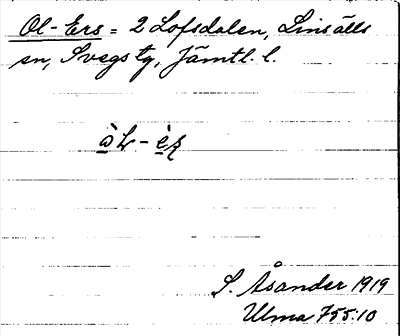 Ol-Ers = 2 Lofsdalen, Linsälls
sn, Svegs tg, Jämtl. l.
S. Åsander 1919
Ulma 755:10